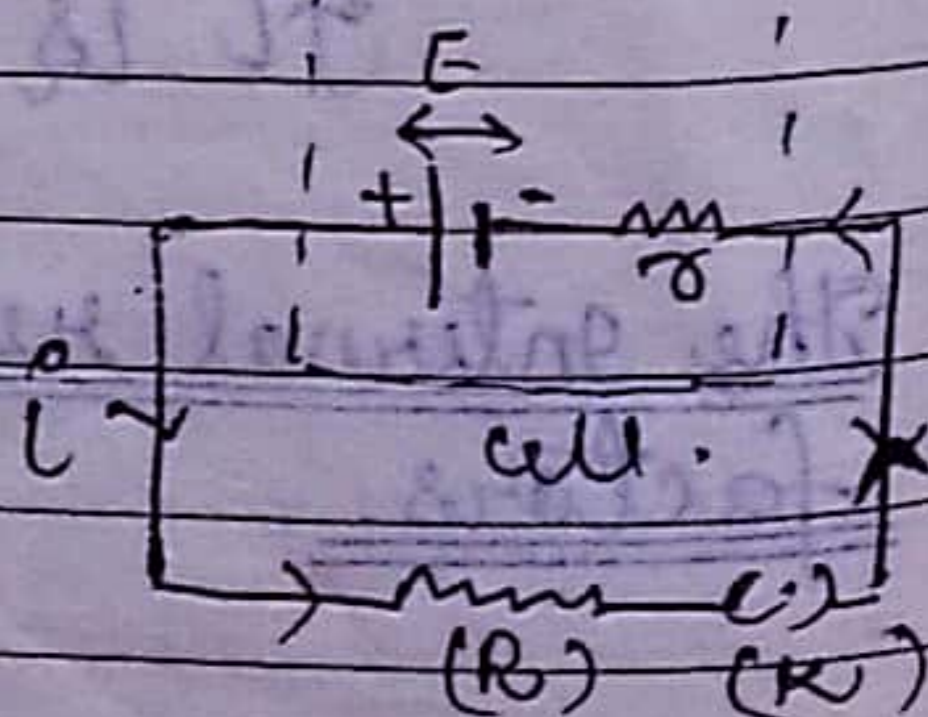 E
+ -
r
i
cell.
(R) (K)